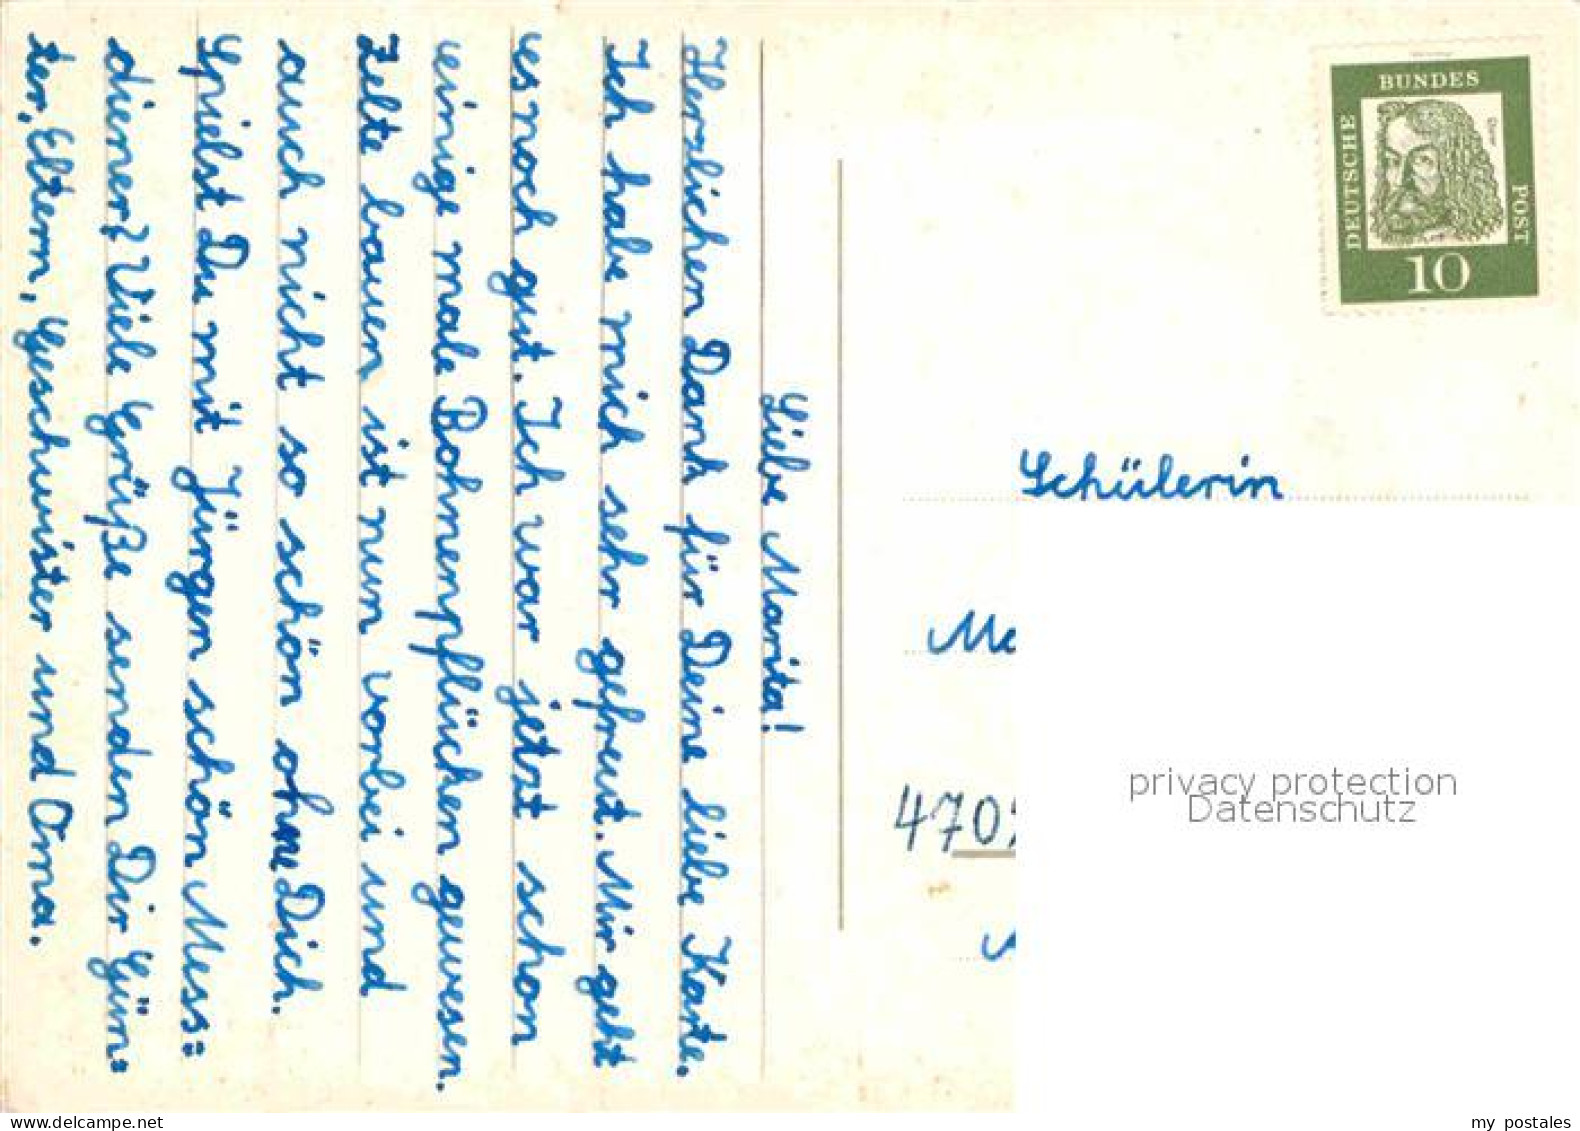 Liebe Marita!
Herzlichen Dank für Deine liebe Karte.
Ich habe mich sehr gefreut. Mir geht
es noch gut. Ich war jetzt schon
einige male Bohnenpflücken gewesen.
Zelte bauen ist nun vorbei und
auch nicht so schön ohne Dich.
Spielst Du mit Jürgen schön Mess=
diener? Viele Grüße senden Dir Gün=
ter, Eltern, Geschwister und Oma.
BUNDES
DEUTSCHE
POST
Dürer
10
Schülerin
470
privacy protection
Datenschutz
www.delcampe.net
my_postales